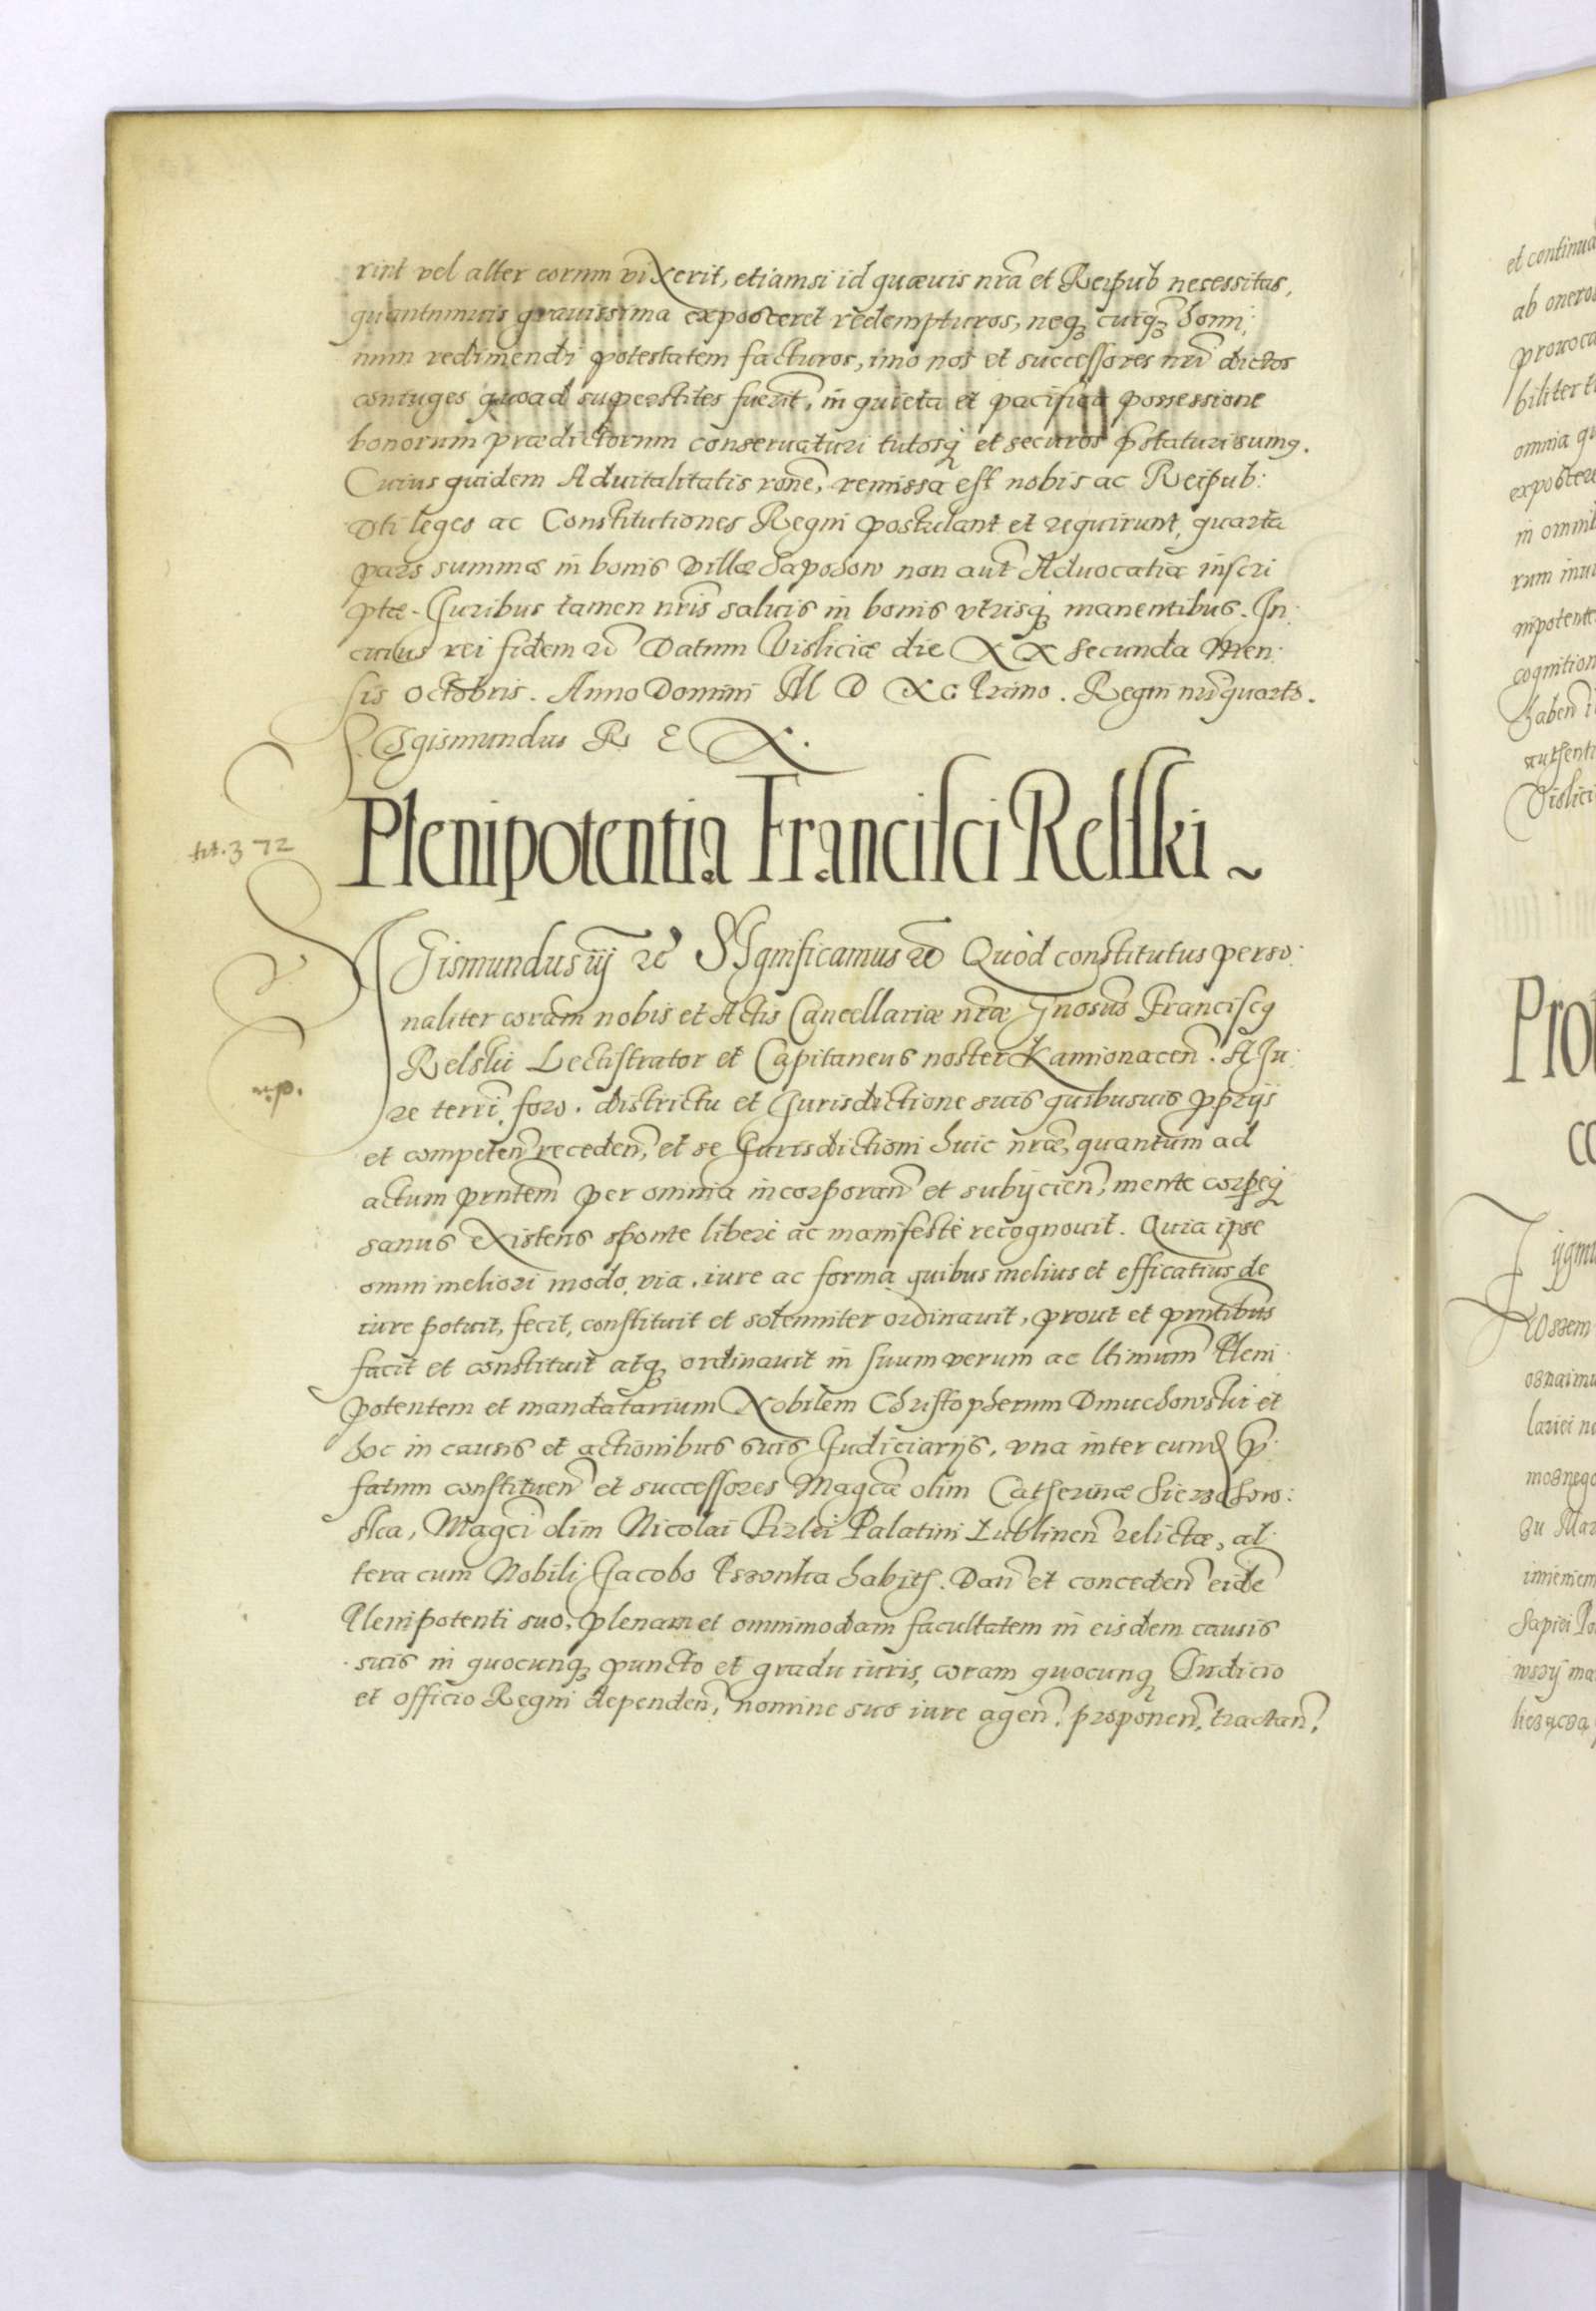 rint vel alter eorum vixerit, etiamsi id quævis nrã et Reipub necessitas,
quantumvis gravissima exposceret redempturos, neq3 cuiq3 homi:
num redimendi potestatem facturos, imo nos et successores nrĩ dictos
coniuges quoad superstites fuerĩt, in quieta et pacifica possessione
bonorum prædictorum conservaturi tutosq3 et securos p̃staturi sumꝰ.
Cuius quidem Advitalitatis rõne, remissa est nobis ac Reipub:
Vti leges ac Constitutiones Regni postulant et requirunt, quarta
pars summæ in bonis villæ Sapohow non aut̃ Advocatiæ inscri
ptæ. Juribus tamen nrĩs salvis in bonis vtrisq3 manentibus. In
cuius rei fidem &c̃ Datum Visliciæ die XX secunda Men:
sis Octobris. Anno Domini M D XC Primo. Regni nrĩ quarto.
Sigismundus R E X.
Plenipotentia Francisci Relski ~
tit. 372
Sigismundus iij &c̃ Significamus &c̃ Quòd constitutus perso:
naliter coram nobis et Actis Cancellariæ nræ Gnosus Franciscꝰ
Relski Lectistrator et Capitaneus noster Kamionacen̄. A Ju:
re terrĩ, foro. districtu et Jurisdictione suis quibusvis pprijs
m.p.
et competen̄ receden̄, et se Jurisdictioni huic nræ, quantum ad
actum prñtem per omnia incorporan̄ et subijcien̄, mente corpeq3
sanus existens sponte liberè ac manifestè recognovit. Quia ipse
omni meliori modo, via. iure ac forma quibus melius et efficatius de
iure potuit, fecit, constituit et solenniter ordinavit, prout et prñtibus
facit et constituit atq3 ordinavit in suum verum ac ltimum̃ Pleni
potentem et mandatarium Nobilem Christopherum Dmuchowski et
hoc in causis et actionibus suis Judiciarijs, vna inter eund p̃:
fatum constituen̄ et successores Magcæ olim Catherinæ Sierzchow:
ska, Magci olim Nicolai Firlei Palatini Lublinen̄ relictæ, al:
tera cum Nobili Jacobo Pszonka habitis. Dan̄ et conceden̄ eidẽ
Plenipotenti suo, plenam et omnimodam facultatem in eisdem causis
suis in quocunq3 puncto et gradu iuris, coram quocunq3 Judicio
et officio Regni dependen̄, nomine suo iure agen̄, proponen̄, tractan̄,